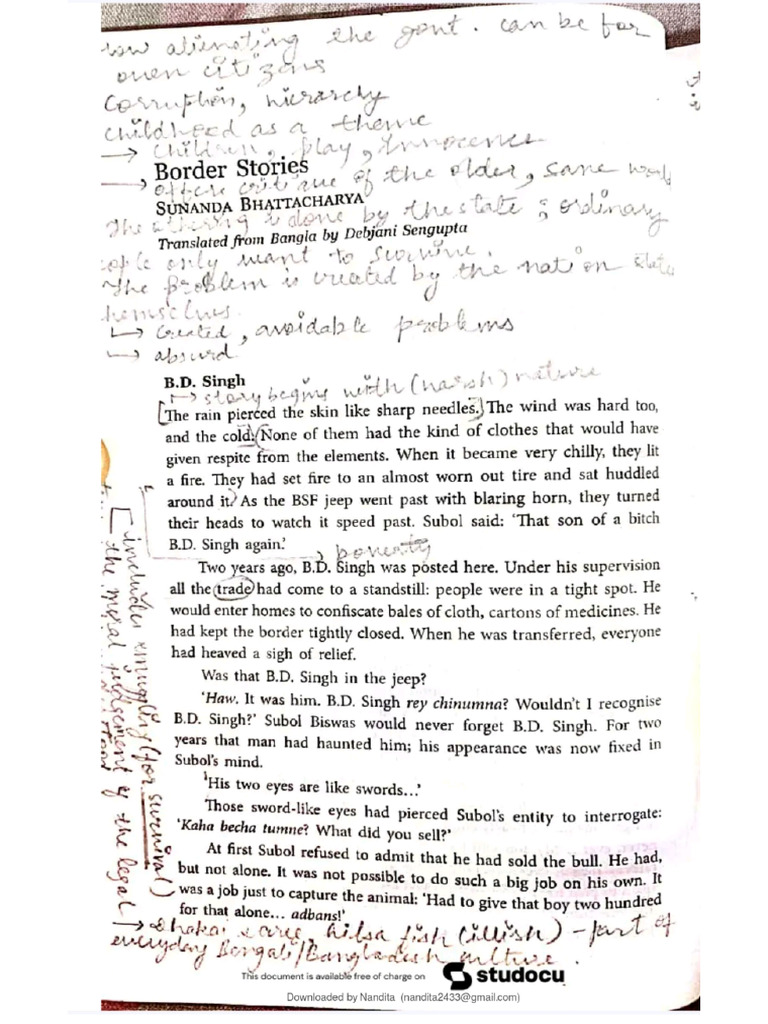 how alienating the govt. can be for
own citizens
Corruption, hierarchy
childhood as a theme
→ Children, play, innocence
Border Stories
→ offers critique of the older, sane world
SUNANDA BHATTACHARYA
The othering is done by the state; ordinary
Translated from Bangla by Debjani Sengupta
people only want to survive.
The problem is created by the nation state
themselves.
↳ created, avoidable problems
↳ absurd
B.D. Singh
↳ story begins with (harsh) nature
[The rain pierced the skin like sharp needles.] The wind was hard too,
and the cold. (None of them had the kind of clothes that would have
given respite from the elements. When it became very chilly, they lit
a fire. They had set fire to an almost worn out tire and sat huddled
around it.) As the BSF jeep went past with blaring horn, they turned
their heads to watch it speed past. Subol said: 'That son of a bitch
B.D. Singh again.'
→ poverty
Two years ago, B.D. Singh was posted here. Under his supervision
all the trade had come to a standstill: people were in a tight spot. He
would enter homes to confiscate bales of cloth, cartons of medicines. He
had kept the border tightly closed. When he was transferred, everyone
had heaved a sigh of relief.
Was that B.D. Singh in the jeep?
'Haw. It was him. B.D. Singh rey chinumna? Wouldn't I recognise
B.D. Singh?' Subol Biswas would never forget B.D. Singh. For two
years that man had haunted him; his appearance was now fixed in
Subol's mind.
'His two eyes are like swords...'
Those sword-like eyes had pierced Subol's entity to interrogate:
'Kaha becha tumne? What did you sell?'
At first Subol refused to admit that he had sold the bull. He had,
but not alone. It was not possible to do such a big job on his own. It
was a job just to capture the animal: 'Had to give that boy two hundred
for that alone... adbans!'
[includes smuggling (for survival)
the moral judgement of the legal
→ Dhakai saree, hilsa fish (illish) - part of
everyday Bengali/Bangladesh culture.
This document is available free of charge on
studocu
Downloaded by Nandita (nandita2433@gmail.com)